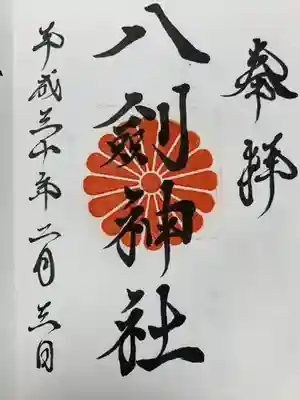 奉拝
八剣神社
平成三十年二月三日